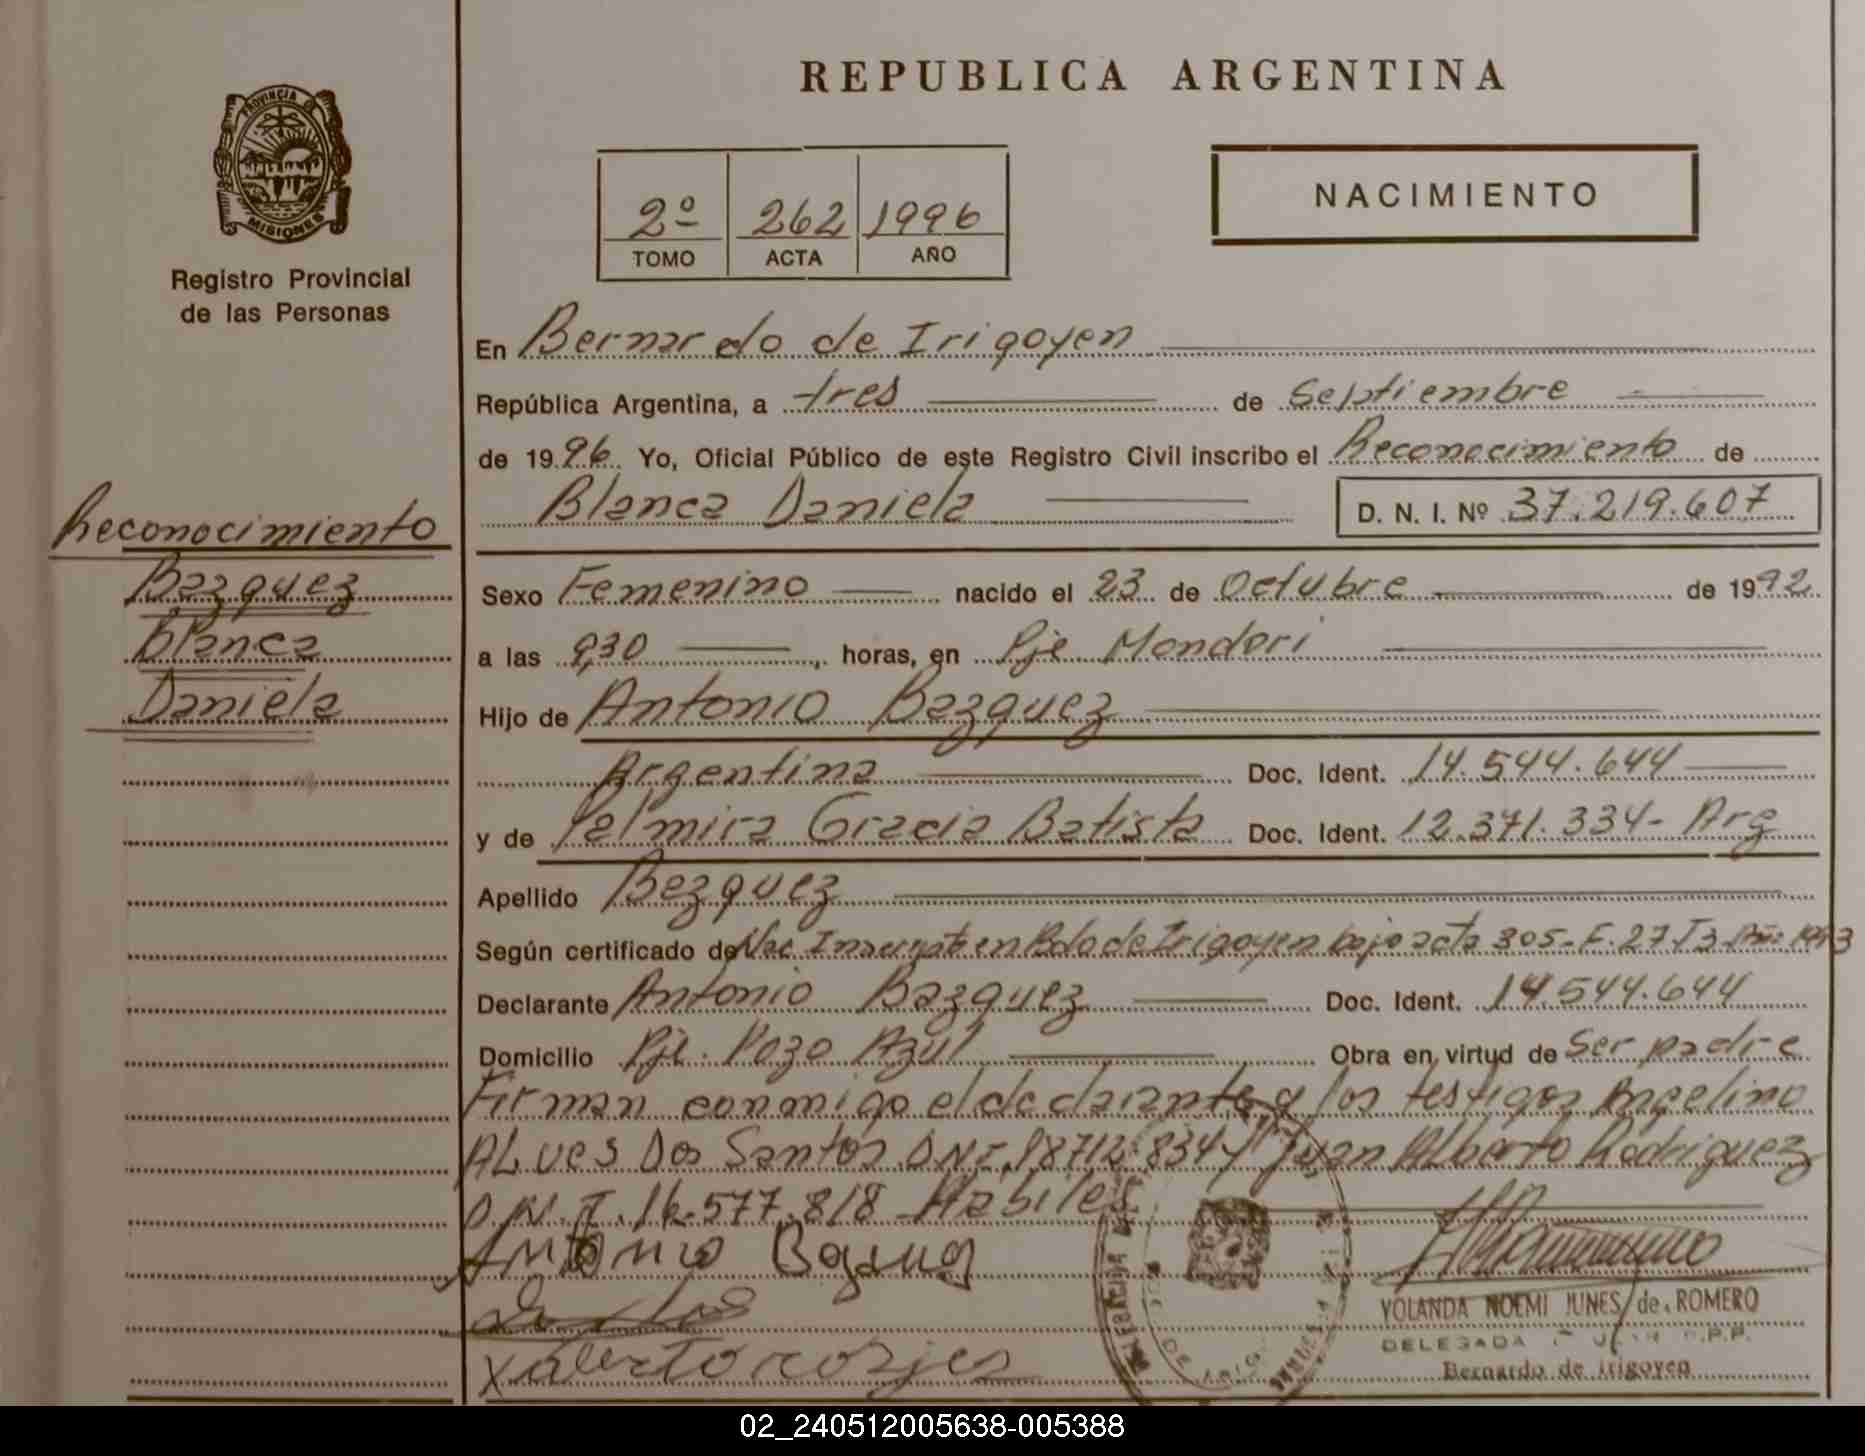 REPUBLICA ARGENTINA
PROVINCIA D
MISIONES
Registro Provincial
de las Personas
2º 262 1996
TOMO ACTA AÑO
NACIMIENTO
En Bernardo de Irigoyen
República Argentina, a tres de Septiembre
de 1996 Yo, Oficial Público de este Registro Civil inscribo el Reconocimiento de
Blanca Daniela D. N. I. Nº 37.219.607
Reconocimiento
Bazquez
Blanca
Daniela
Sexo Femenino nacido el 23 de Octubre de 1992
a las 9,30 horas, en Pje Mondori
Hijo de Antonio Bazquez
Argentina Doc. Ident. 14.544.644
y de Palmira Gracia Batista Doc. Ident. 12.371.334- Arg
Apellido Bazquez
Según certificado de Nac. Inscripto en Bdo de Irigoyen bajo acta 305- F. 27 T3- Año 1993
Declarante Antonio Bazquez Doc. Ident. 14.544.644
Domicilio Pje. Pozo Azul Obra en virtud de Ser padre
Firman conmigo el declarante y los testigos Angelino
ALves Dos Santos D.N.I. 18712.834 y Juan Alberto Rodriguez
D.N.I. 16.577.818 Habiles
Antonio
YOLANDA NOEMI JUNES de ROMERO
DELEGADA R.P.P.
Bernardo de Irigoyen
02_240512005638-005388